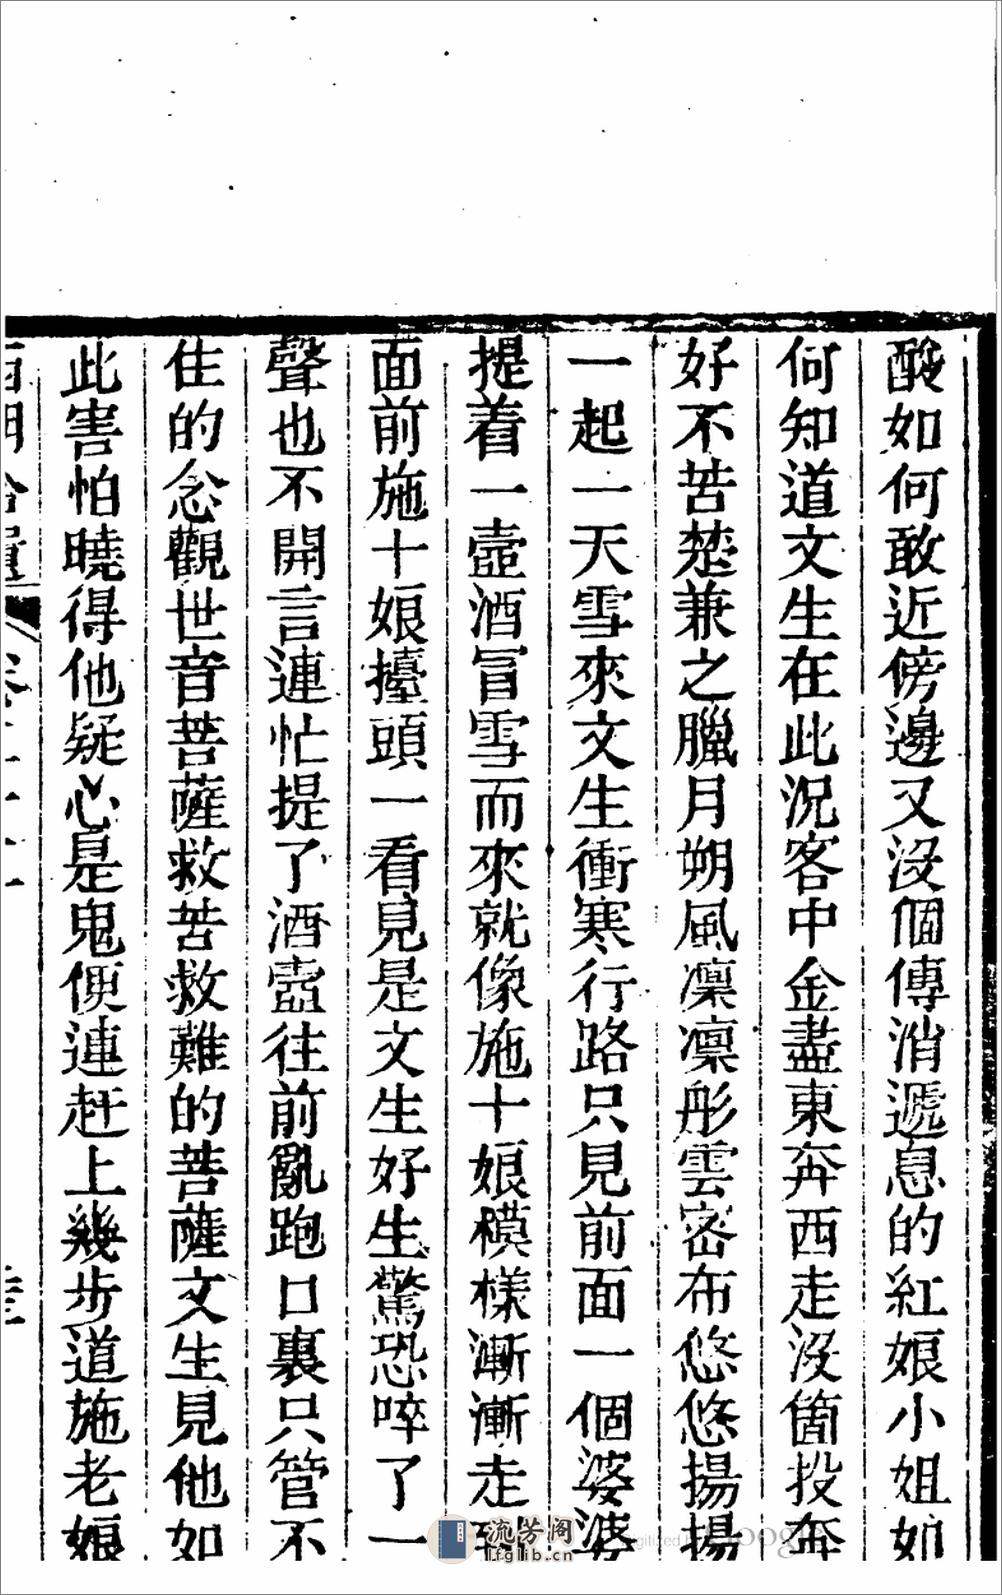 酸如何敢近傍邊又没個傳消遞息的紅娘小姐如
何知道文生在此況客中金盡東奔西走没箇投奔
好不苦楚兼之臘月朔風凜凜彤雲密布悠悠揚揚
一起一天雪來文生衝寒行路只見前面一個婆婆
提着一壼酒冒雪而來就像施十娘模樣漸漸走到
面前施十娘擡頭一看見是文生好生驚恐啐了一
聲也不開言連忙提了酒壼往前亂跑口裏只管不
住的念觀世音菩薩救苦救難的菩薩文生見他如
此害怕曉得他疑心是鬼便連赶上幾步道施老娘
流芳阁
lfglib.cn
Digitized by Google